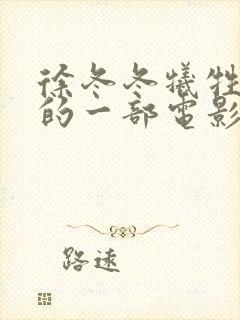 徐冬冬犧牲
的一部電影
路遠